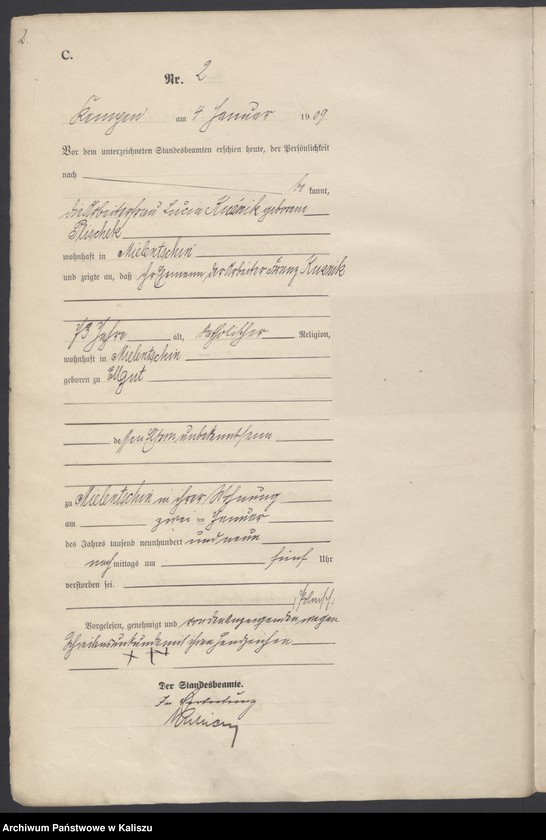 2
C.
Nr. 2
Kempen am 4. Januar 1909
Vor dem unterzeichneten Standesbeamten erschien heute, der Persönlichkeit
nach be kannt,
die Arbeiterfrau Lucia Kusnik geborene
Plischek
wohnhaft in Mielentschin
und zeigte an, daß ihr Ehemann, der Arbeiter Franz Kusnik
73 Jahre alt, katholischer Religion,
wohnhaft in Mielentschin
geboren zu Ellgut
dessen Eltern unbekannt sein
zu Mielentschin in ihrer Wohnung
am zwei ten Januar
des Jahres tausend neunhundert und neun
nach mittags um fünf Uhr
verstorben sei.
(Polnisch)
Vorgelesen, genehmigt und von der Anzeigenden wegen
Schreibensunkunde mit ihren Handzeichen
+++
Der Standesbeamte.
In Vertretung
Archiwum Państwowe w Kaliszu